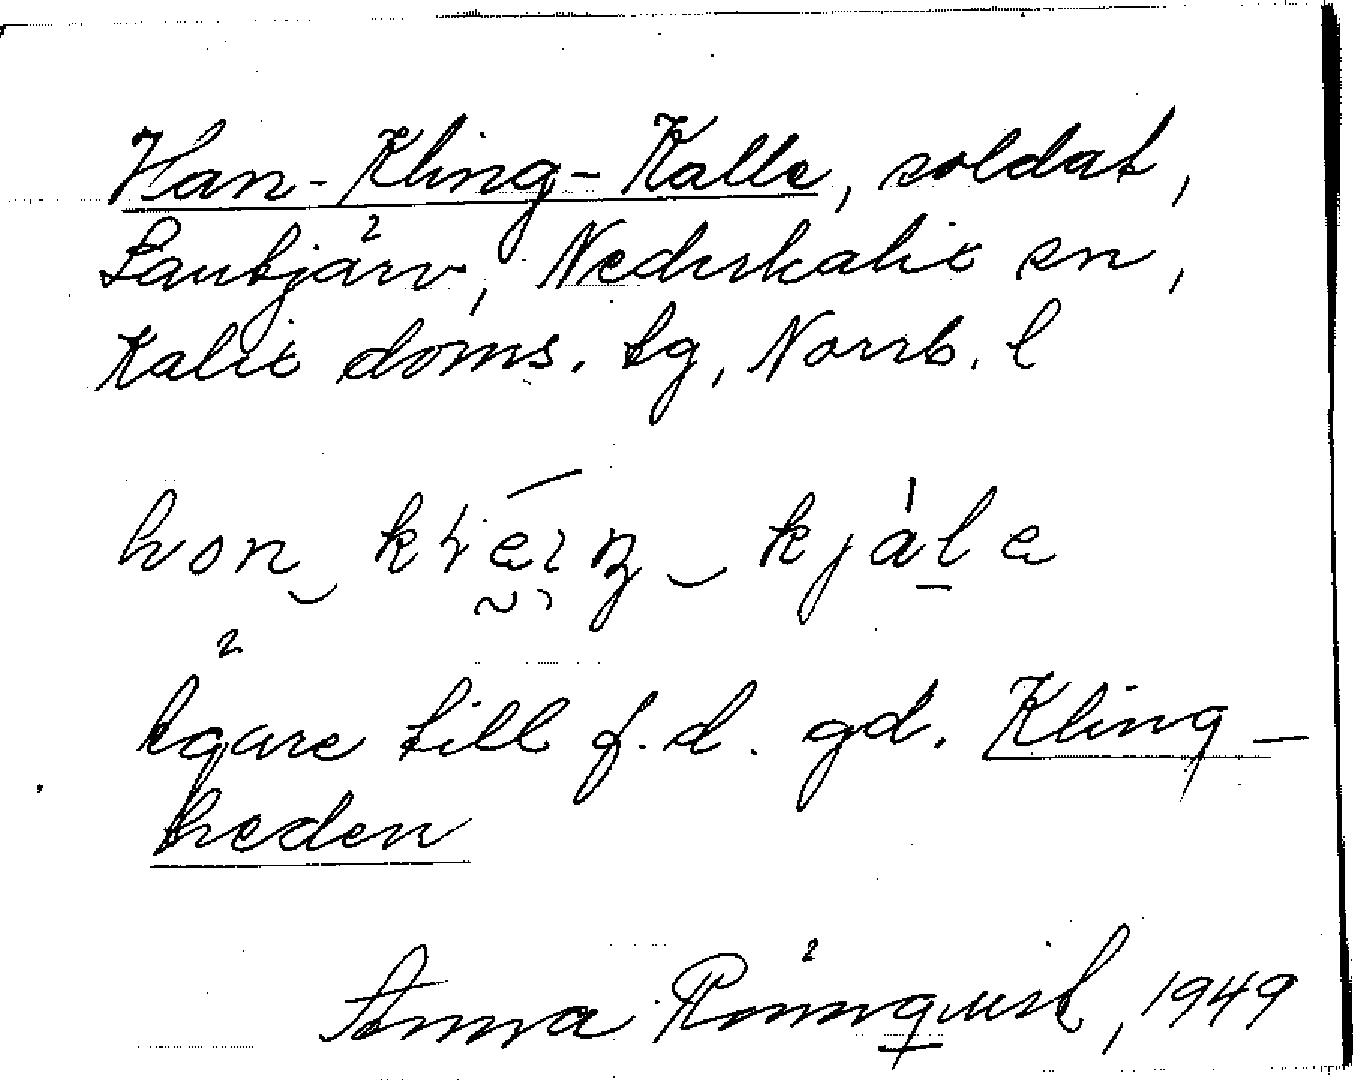 Han-Kling-Kalle, soldat,
Lantjärv, Nederkalix sn,
Kalix doms. tg, Norrb. l
ägare till f.d. gd. Kling-
heden
Anna Rönnqvist, 1949